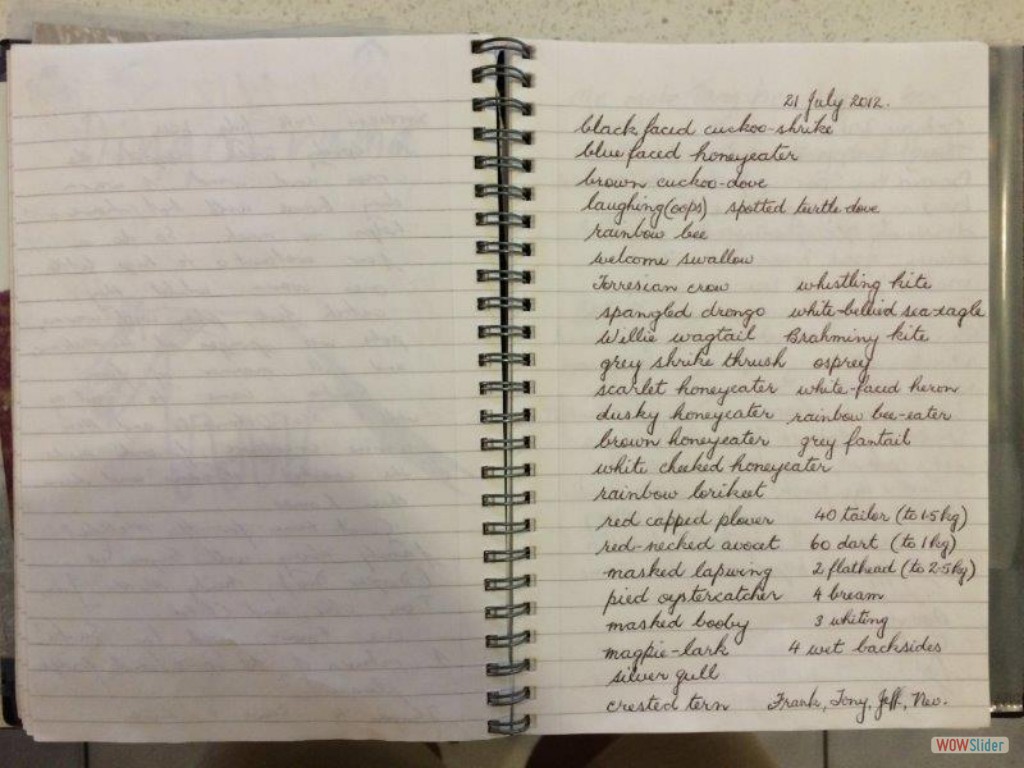 21 July 2012.
black faced cuckoo-shrike
blue faced honeyeater
brown cuckoo-dove
laughing (oops) spotted turtle dove
rainbow bee
welcome swallow
Torresian crow whistling kite
spangled drongo white-bellied sea-eagle
Willie wagtail Brahminy kite
grey shrike thrush osprey
scarlet honeyeater white-faced heron
dusky honeyeater rainbow bee-eater
brown honeyeater grey fantail
white cheeked honeyeater
rainbow lorikeet
red capped plover 40 tailor (to 1.5kg)
red-necked avocet 60 dart (to 1kg)
masked lapwing 2 flathead (to 2.5kg)
pied oystercatcher 4 bream
masked booby 3 whiting
magpie-lark 4 wet backsides
silver gull
crested tern Frank, Tony, Jeff, Nev.
WOWSlider